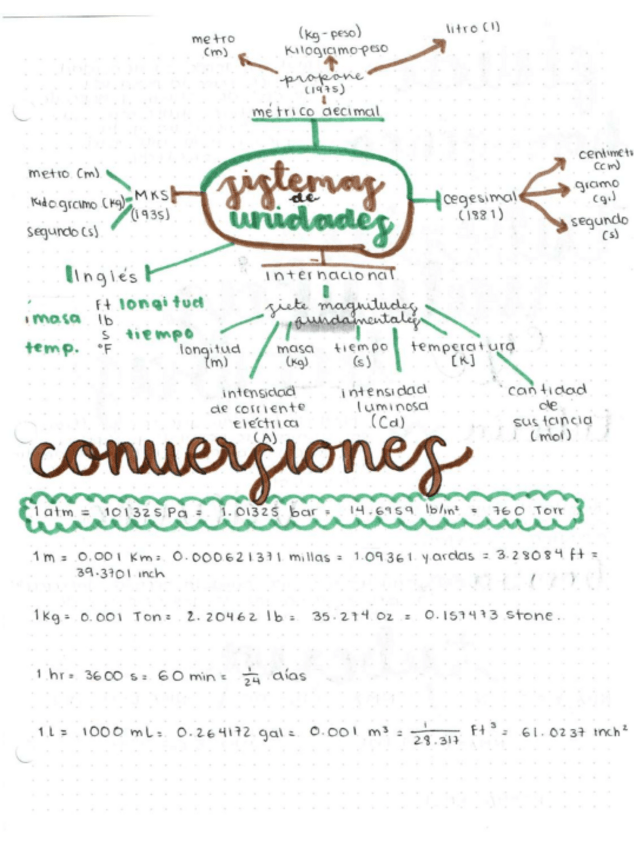 metro
(m)
(kg-peso)
Kilogramo-peso
litro (l)
propone
(1975)
métrico decimal
sistemas
de
unidades
metro (m)
Kilogramo (kg)
segundo (s)
MKS
(1935)
cegesimal
(1881)
centimet
(cm)
gramo
(g)
segundo
(s)
Inglés
Ft longitud
masa lb
s tiempo
temp. °F
internacional
siete magnitudes
fundamentales
longitud
(m)
masa
(kg)
tiempo
(s)
temperatura
[K]
intensidad
de corriente
electrica
(A)
intensidad
luminosa
(Cd)
cantidad
de
sustancia
(mol)
conversiones
1 atm = 101325 Pa = 1.01325 bar = 14.6959 lb/in² = 760 Torr
1 m = 0.001 Km = 0.000621371 millas = 1.09361 yardas = 3.28084 ft =
39.3701 inch
1 Kg = 0.001 Ton = 2.20462 lb = 35.274 oz = 0.157473 Stone.
1 hr = 3600 s = 60 min = 1/24 días
1 L = 1000 mL = 0.264172 gal = 0.001 m³ = 1/28.317 Ft³ = 61.0237 inch²